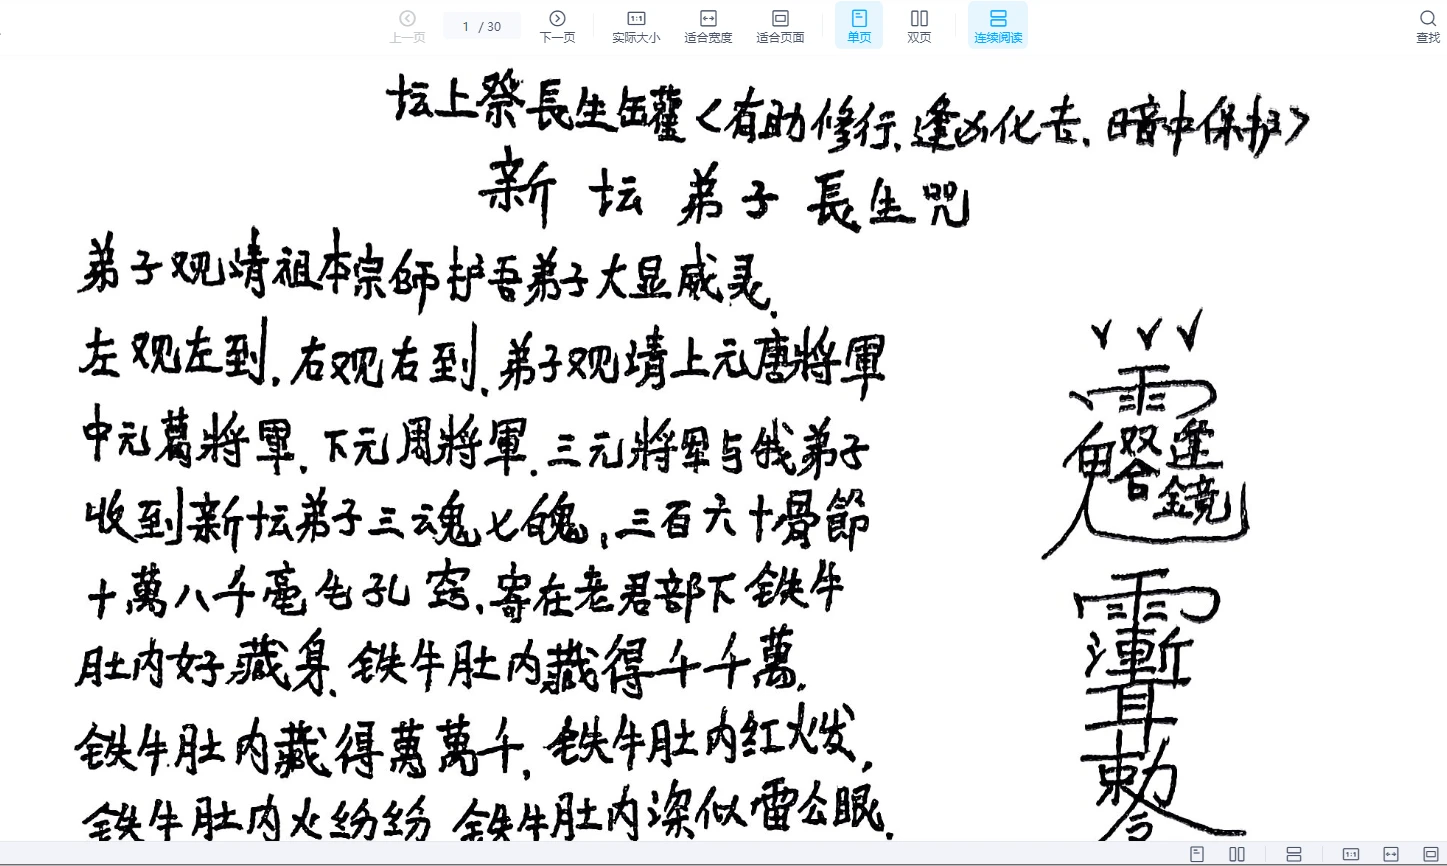 上一页
1 / 30
下一页
实际大小
适合宽度
适合页面
单页
双页
连续阅读
查找
坛上祭長生缶罐<有助修行,逢凶化吉,暗中保护>
新坛弟子長生咒
弟子观请祖本宗師护吾弟子大显威灵,
左观左到,右观右到,弟子观请上元唐將軍
中元葛將軍,下元周將軍,三元將軍与俄弟子
收到新坛弟子三魂七魄,三百六十骨節
十萬八千毫毛孔窍,寄在老君部下铁牛
肚内好藏身,铁牛肚内藏得千千萬,
铁牛肚内藏得萬萬千,铁牛肚内红火发,
铁牛肚内火纷纷 铁牛肚内深似雷公眼,